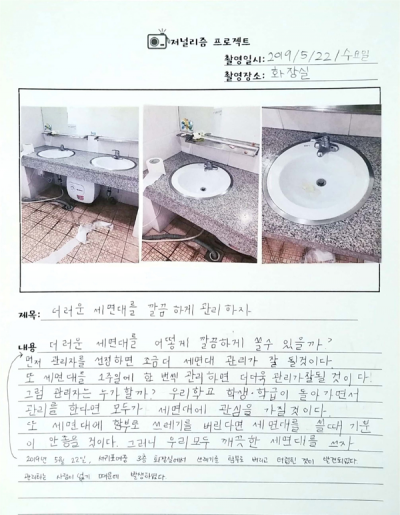 저널리즘 프로젝트
촬영일시: 2019/5/22/수요일
촬영장소: 화장실
제목: 더러운 세면대를 깔끔하게 관리하자
내용 더러운 세면대를 어떻게 깔끔하게 쓸수 있을까?
먼저 관리자를 선정하면 조금더 세면대 관리가 잘 될것이다
또 세면대를 1주일에 한 번씩 관리하면 더더욱 관리가잘될것이다.
그럼 관리자는 누가 할까? 우리학교 학생·학급이 돌아가면서
관리를 한다면 모두가 세면대에 관심을 가질 것이다.
또 세면대에 함부로 쓰레기를 버린다면 세면대를 쓸때 기분
이 안좋을 것이다. 그러니 우리모두 깨끗한 세면대를 쓰자
2019년 5월 22일, 화장실에서 쓰레기를 함부로 버리고 더럽힌 것이 발견되었다
관리하는 사람이 없기 때문에 발생하였다.